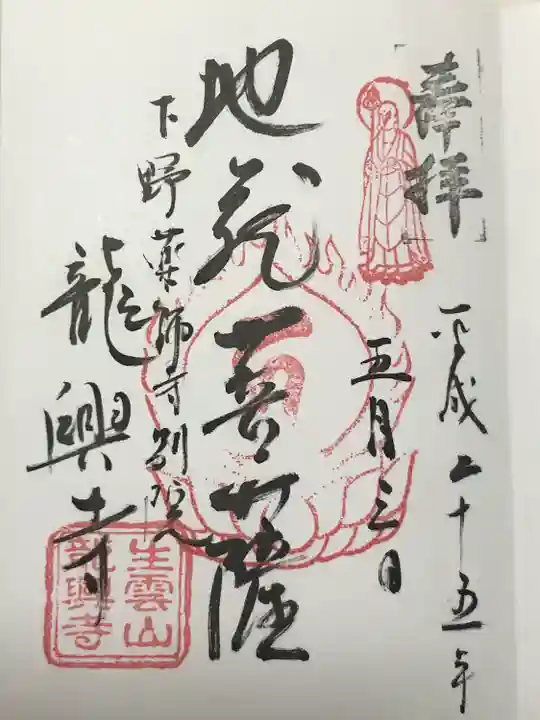 奉拝
平成二十五年
五月三日
地蔵菩薩
下野薬師寺別院
龍興寺
生雲山
龍興寺